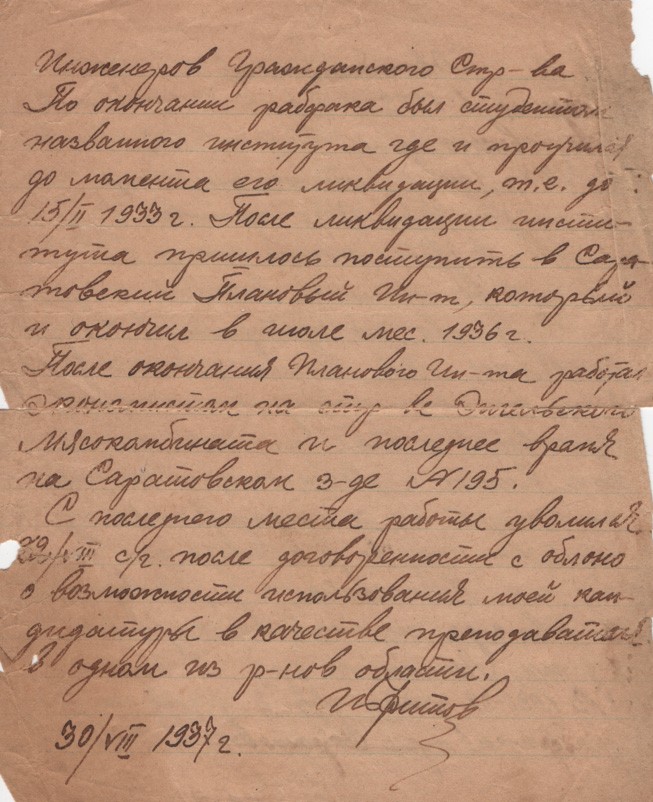 Инженеров Гражданского Стр-ва
По окончании рабфака был студентом
названного института где и проучился
до момента его ликвидации, т.е. до
15/II 1933 г. После ликвидации инсти-
тута пришлось поступить в Сара-
товский Плановый Ин-т, который
и окончил в июле мес. 1936 г.
После окончания Планового Ин-та работал
экономистом на стр-ве Энгельсского
мясокомбината и последнее время
на Саратовском з-де №195.
С последнего места работы уволился
29/VIII с/г. после договоренности с облоно
о возможности использования моей кан-
дидатуры в качестве преподавателя
в одном из р-нов области.
30/VIII 1937 г.